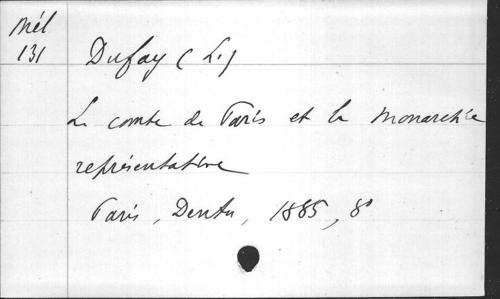 Mél
131
Dufay (L.)
Le comte de Paris et la monarchie
représentative
Paris, Dentu, 1885, 8°